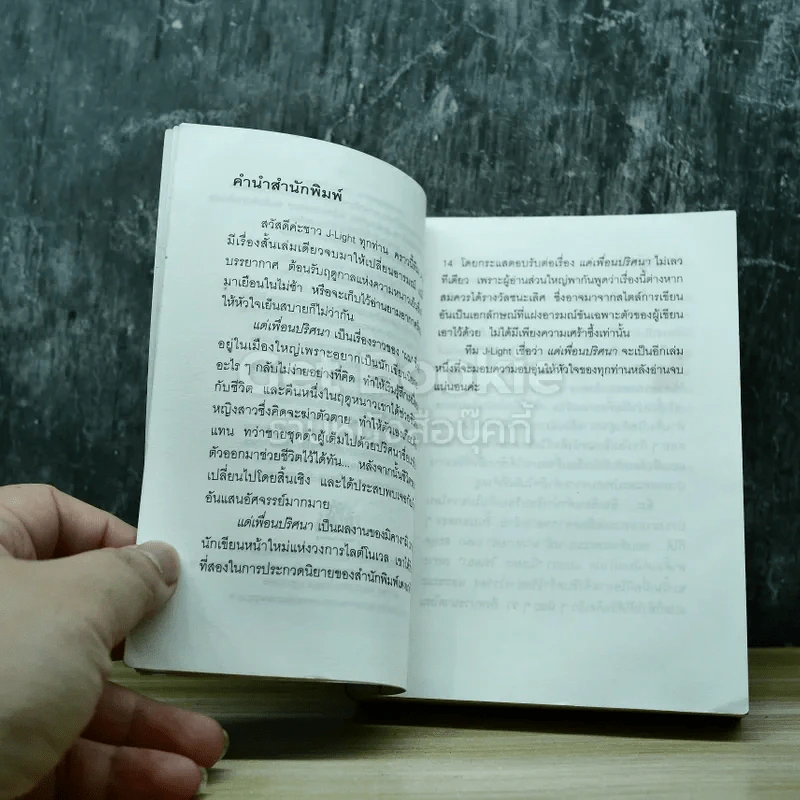 คำนำสำนักพิมพ์
สวัสดีค่ะชาว J-Light ทุกท่าน คราวนี้
มีเรื่องสั้นเล่มเดียวจบมาให้เปลี่ยนอารมณ์
บรรยากาศ ต้อนรับฤดูกาลแห่งความหนาวเย็น
มาเยือนในไม่ช้า หรือจะเก็บไว้อ่านยามอากาศ
ให้หัวใจเย็นสบายก็ไม่ว่ากัน
แด่เพื่อนปริศนา เป็นเรื่องราวของ
อยู่ในเมืองใหญ่เพราะอยากเป็นนักเขียน
อะไร ๆ กลับไม่ง่ายอย่างที่คิด ทำให้เริ่มรู้สึก
กับชีวิต และคืนหนึ่งในฤดูหนาวเขาได้ช่วย
หญิงสาวซึ่งคิดจะฆ่าตัวตาย ทำให้ตัวเอง
แทน ทว่าชายชุดดำผู้เต็มไปด้วยปริศนา
ตัวออกมาช่วยชีวิตไว้ได้ทัน... หลังจากนั้นชีวิต
เปลี่ยนไปโดยสิ้นเชิง และได้ประสบพบเจอกับ
อันแสนอัศจรรย์มากมาย
แด่เพื่อนปริศนา เป็นผลงานของมิคางามิ
นักเขียนหน้าใหม่แห่งวงการไลต์โนเวล เขาได้
ที่สองในการประกวดนิยายของสำนักพิมพ์
14 โดยกระแสตอบรับต่อเรื่อง แด่เพื่อนปริศนา ไม่เลว
ทีเดียว เพราะผู้อ่านส่วนใหญ่พากันพูดว่าเรื่องนี้ต่างหาก
สมควรได้รางวัลชนะเลิศ ซึ่งอาจมาจากสไตล์การเขียน
อันเป็นเอกลักษณ์ที่แฝงอารมณ์ขันเฉพาะตัวของผู้เขียน
เอาไว้ด้วย ไม่ได้มีเพียงความเศร้าซึ้งเท่านั้น
ทีม J-Light เชื่อว่า แด่เพื่อนปริศนา จะเป็นอีกเล่ม
หนึ่งที่จะมอบความอบอุ่นให้หัวใจของทุกท่านหลังอ่านจบ
แน่นอนค่ะ